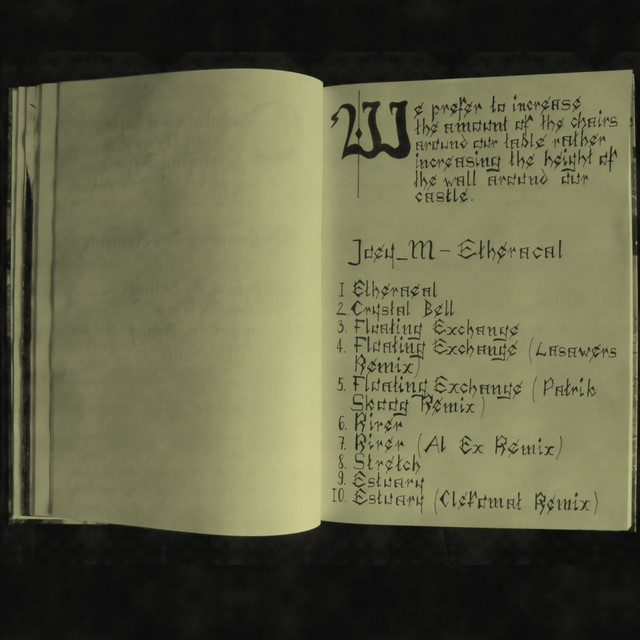 We prefer to increase
the amount of the chairs
around our table rather
increasing the height of
the wall around our
castle.
Joey_M - Etheracal
1 Etheracal
2 Crystal Bell
3. Floating Exchange
4. Floating Exchange (Lasawers
Remix)
5. Floating Exchange (Patrik
Skoog Remix)
6. Rirer
7. Rirer (Al Ex Remix)
8. Stretch
9. Estuary
10. Estuary (Clefomat Remix)